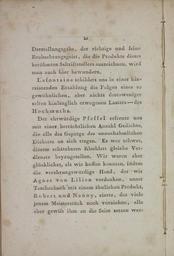 Darstellungsgabe, der richtige und feine
Beobachtungsgeist, die die Produkte dieses
berühmten Schriftstellers auszeichnen, wird
man auch hier bewundern.
Lafontaine schildert uns in einer hin-
reissenden Erzählung die Folgen eines so
gewöhnlichen, aber nichts destoweniger
selten hinlänglich erwogenen Lasters — des
Hochmuths.
Der ehrwürdige Pfeffel erfreute uns
mit einer beträchtlichen Anzahl Gedichte,
die alle das Gepräge des unnachahmlichen
Dichters an sich tragen. Es war schwer,
diesem schätzbaren Kleeblatt gleiche Ver-
dienste beyzugesellen. Wir waren aber
glücklicher, als wir hoffen konnten, indem
die verehrungswürdige Hand, der wir
Agnes von Lilien verdanken, unser
Taschenbuch mit einem ähnlichen Produkt,
Robert und Nanny, zierte, das vielen
jenem Meisterstück noch vorziehen, alle
aber gewiss ihm an die Seite setzen wer-